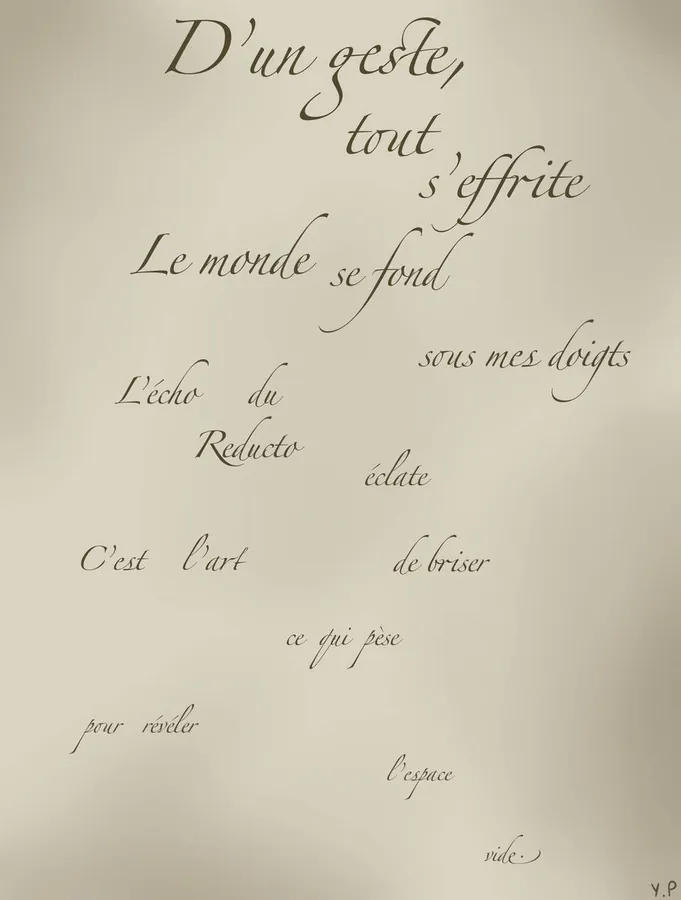 D'un geste,
tout
s'effrite
Le monde se fond
sous mes doigts
L'écho du
Reducto
éclate
C'est l'art de briser
ce qui pèse
pour révéler
l'espace
vide.
Y.P